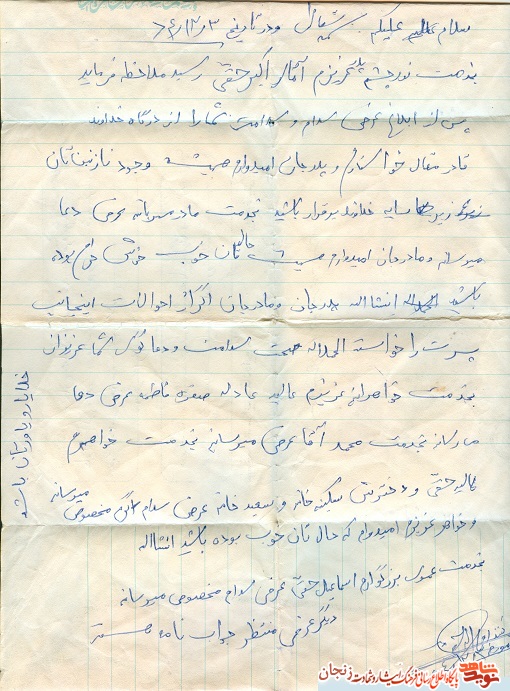 سلام علیکم به شغال ودر تاریخ ۶۴/۱۲/۲
بخدمت نور چشم پدر عزیزم آقای اکبر حقی رسید ملاحظه فرماید
پس از ابلاغ عرض سلام و سلامتی شما را از درگاه خداوند
قادر متعال خواستارم و پدر جان امیدوارم همیشه وجود نازنین تان
زیر سایه خداوند برقرار باشد بخدمت مادر مهربانم عرض دعا
میرسانم ومادر جان امیدوارم همیشه حال تان خوب خوش خرم بوده
باشید انشااله پدر جان ومادر جان اگر از احوالات اینجانب
پسرت را خواسته الحمداله صحت سلامت و دعا گوی شما عزیزان
بخدمت خواهران عزیزم عالیه عادله صغره فاطمه عرض دعا
میرسانم بخدمت محمد آقا عرض میرسانم بخدمت خواهرم
عالیه حقی و دخترش سکینه خانم و سعید خانم عرض سلام گرم مخصوص میرسانم
و خواهر عزیزم امیدوارم که حال تان خوب بوده باشید انشااله
بخدمت عموی بزرگوارم اسماعیل حقی عرض سلام مخصوص میرسانم
دیگر عرضی منتظر جواب نامه هستم
خدایا رو یاورتان باشد
نوید شاهد
پایگاه اطلاع رسانی فرهنگ ایثار و شهادت زنجان